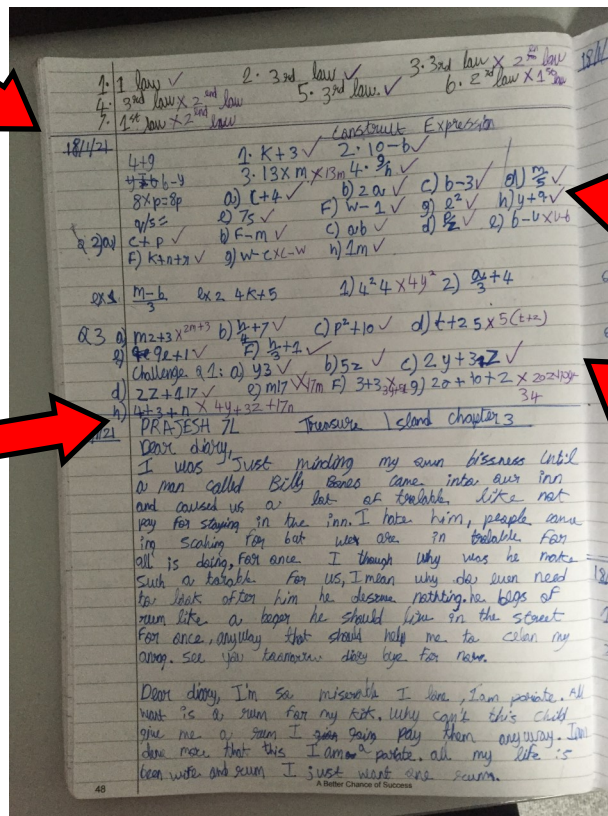 1. 1 law ✓ 2. 3rd law ✓ 3. 3rd law X 2nd law
4. 3rd law X 2nd law 5. 3rd law. ✓ 6. 2nd law X 1st law
7. 1st law X 2nd law
18/1/21 Construct Expression
4+9 1. K+3 ✓ 2. 10-b ✓
b-y 3. 13xm X 13m 4. 9/h ✓
8xp=8p a) c+4 ✓ b) 2a ✓ c) b-3 ✓ d) m/5 ✓
q/5= e) 7s ✓ F) w-1 ✓ g) e² ✓ h) y+9 ✓
Q 2)a) c+p ✓ b) F-m ✓ c) ab ✓ d) p/2 ✓ e) b-u X u-b
F) K+n+x ✓ g) w-c X c-w h) 1m ✓
ex1 m-b/3 ex2 4k+5 1) 4²4 X 4y² 2) a/3+4
Q3 a) m2+3 X 2m+3 b) h/4+7 ✓ c) p²+10 ✓ d) t+25 X 5(t+2)
e) 9e+1 ✓ F) h/3+1 ✓
Challenge Q1: a) y3 ✓ b) 5z ✓ c) 2y+3z ✓
d) 2z+17 ✓ e) m17 X 17m F) 3+3 g) 20+10+2 X
34
h) 4+3+n X 4y+3z+17n
/21 PRAJESH 7L Treasure Island chapter 3
Dear diary,
I was Just minding my own bissness until
a man called Billy Bones came into our inn
and caused us a lot of trolable like not
pay for staying in the inn. I hate him, people came
ing scaling for but wer are in trolable For
all is doing, For once I though why was he make
such a tarable For us, I mean why do even need
to look after him he desrve nothting. he begs of
rum like a beger he should live in the street
For once, anyway that should help me to celan my
anrog. see you toomorrw diary bye for now.
Dear diary, I'm so miserable I lone, I am pariate. All
want is a rum for my kik. Why can't this child
give me a rum I going pay them anyway. I am
done more that this I am a pariate. all my life is
been wote and rum I just want one rum.
48
A Better Chance of Success